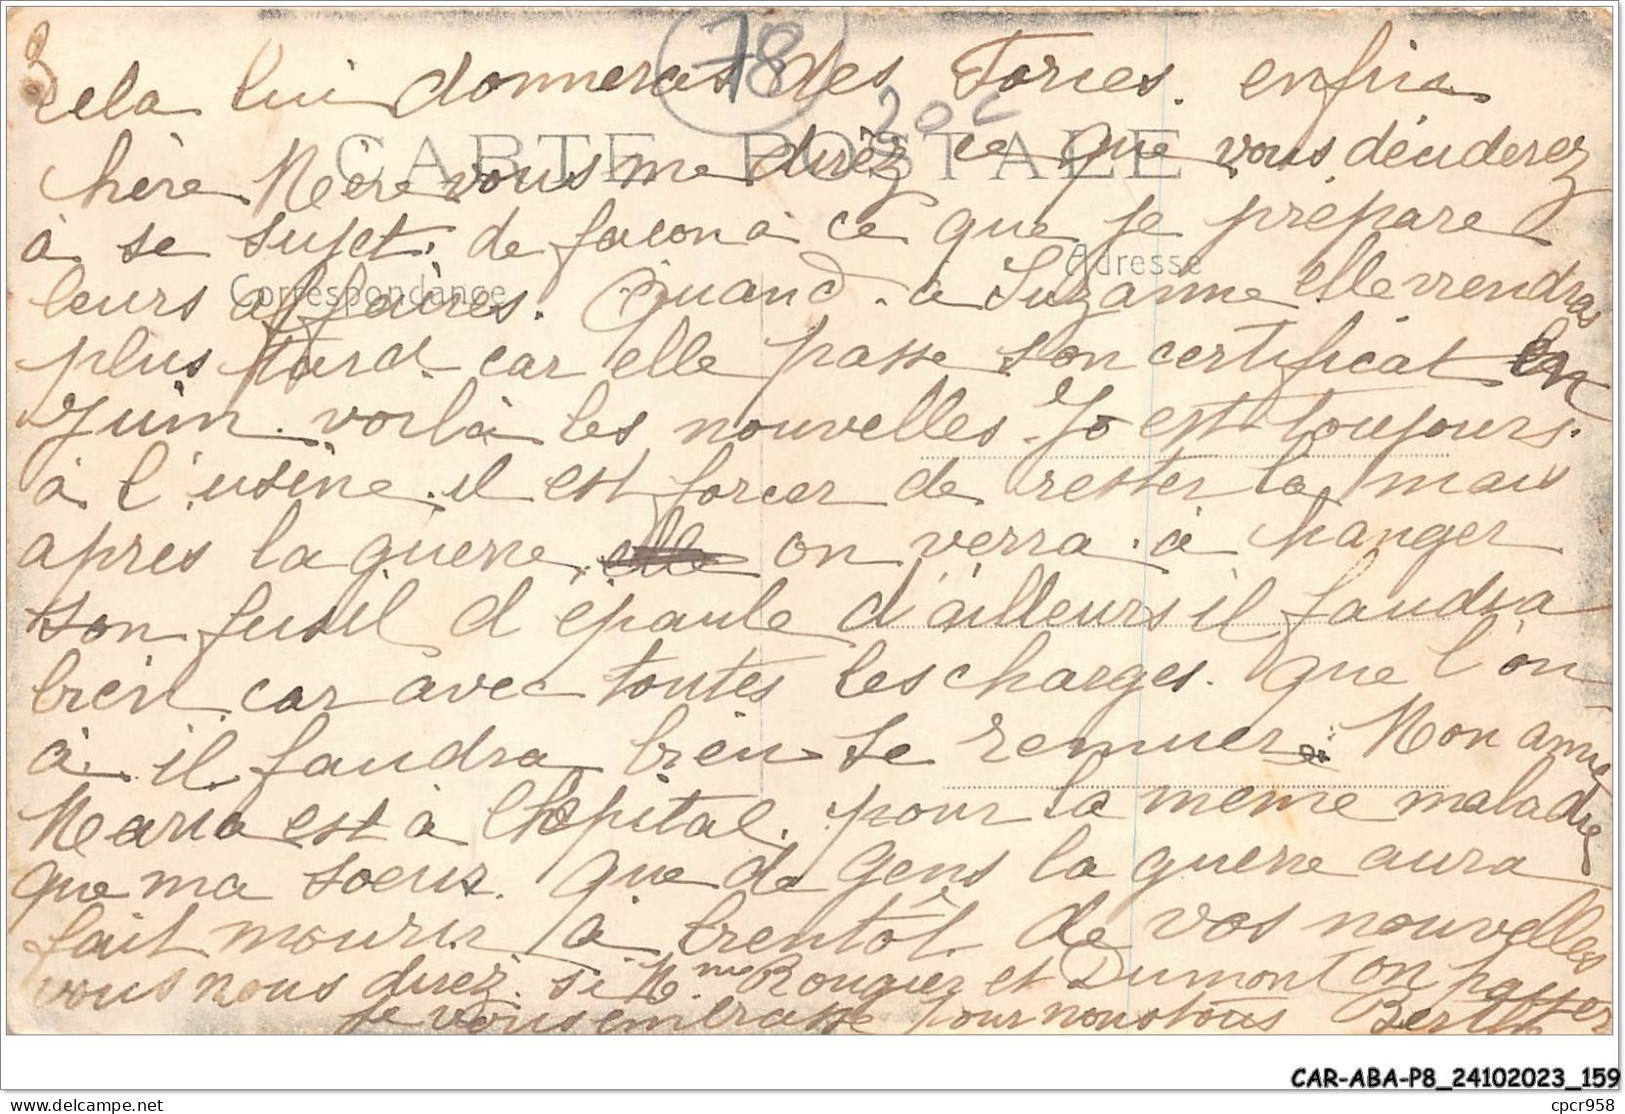 3
78
20c
CARTE POSTALE
Correspondance
Adresse
cela lui donneras des Forces. enfin
chère Mère vous me direz ce que vous déciderez
à se sujet. de facon à ce que je prépare
leurs affaires. Quand. a Suzanne elle viendras
plus tard car elle passe son certificat en
Juin. voilà les nouvelles. Jo est toujours.
à l'usine. il est forcer de rester là, mais
apres la guerre on verra. à changer
son fusil d épaule d'ailleurs il faudra
bien car avec toutes les charges. que l'on
à. il faudra bien se remuer. Mon amie
Maria est à l'hôpital. pour la meme maladie
que ma soeur. que de gens la guerre aura
fait mourir à bientôt de vos nouvelles
vous nous direz. si Mme Rougier et Dumont on passer
je vous embrasse pour nous tous Berthe
CAR-ABA-P8_24102023_159
delcampe.net
cpcr958